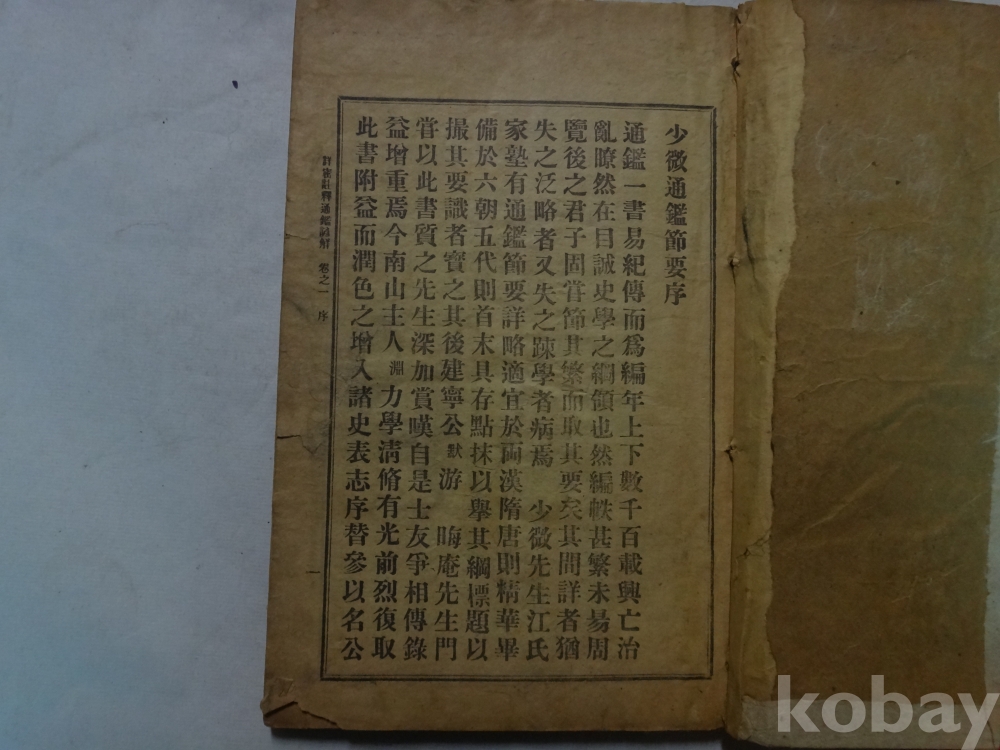 少微通鑑節要序
通鑑一書易紀傳而爲編年上下數千百載興亡治
亂瞭然在目誠史學之綱領也然編帙甚繁未易周
覽後之君子固甞節其繁而取其要矣其間詳者猶
失之泛略者又失之踈學者病焉 少微先生江氏
家塾有通鑑節要詳略適宜於兩漢隋唐則精華畢
備於六朝五代則首末具存點抹以舉其綱標題以
撮其要識者寶之其後建寧公默游 晦庵先生門
甞以此書質之先生深加賞嘆自是士友爭相傳錄
益增重焉今南山主人淵力學淸脩有光前烈復取
此書附益而潤色之增入諸史表志序替參以名公
詳密註釋通鑑諺解 卷之一 序
kobay